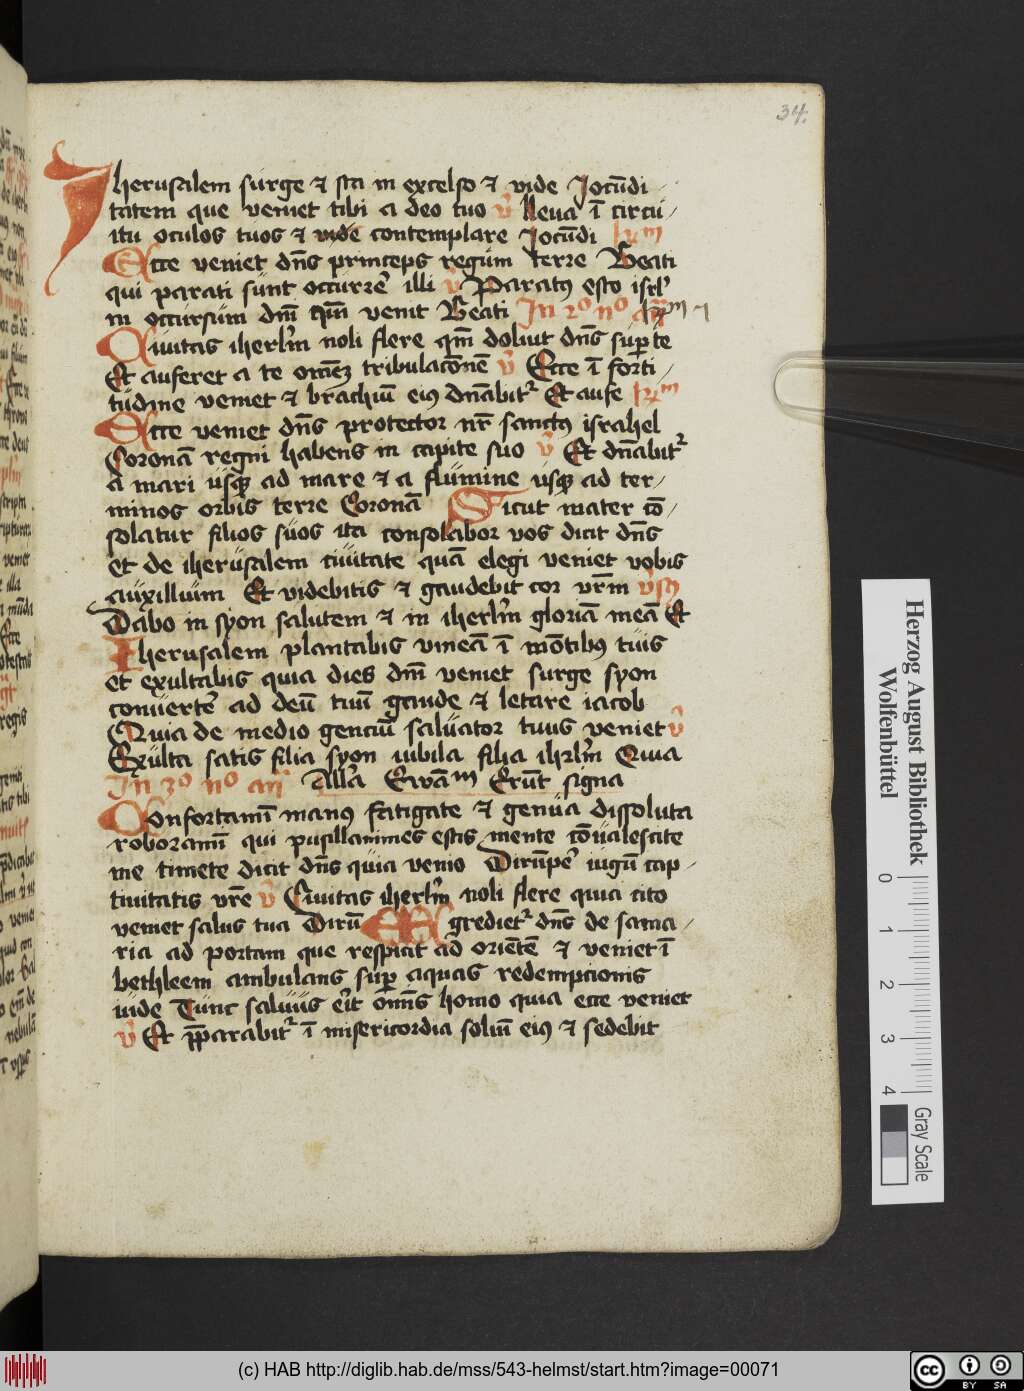 34.
Jherusalem surge ⁊ sta in excelso ⁊ vide Jocūdi
tatem que veniet tibi a deo tuo v̄ lleua ī circu/
itu oculos tuos ⁊ vide contemplare Jocūdi
Ecce veniet dn̄s princeps regum terre Beati
qui parati sunt occurrē illi v̄ Paratꝰ esto isrl'
in occursum dn̄i qm̄ venit Beati In 2º nº
Ciuitas iherlm̄ noli flere qm̄ doluit dn̄s sup te
Et auferet a te omēz tribulacōnē v̄ Ecce ī forti/
tudine veniet ⁊ brachiū eiꝰ dn̄abitr̄ Et aufe
Ecce veniet dn̄s protector nr̄ sanctꝰ israhel
Coronā regni habens in capite suo v̄ Et dn̄abitr̄
a mari usqꝫ ad mare ⁊ a flumine usqꝫ ad ter/
minos orbis terre Coronā Sicut mater cō/
solatur filios suos ita consolabor vos dicit dn̄s
et de iherusalem ciuitate quā elegi veniet vobis
auxillium Et videbitis ⁊ gaudebit cor vr̄m
Dabo in syon salutem ⁊ in iherlm̄ gloriā meā Et
Jherusalem plantabis vineā ī mōtibꝰ tuis
et exultabis quia dies dn̄i veniet surge syon
conuertē ad deū tuū gaude ⁊ letare iacob
Quia de medio genciū saluator tuus veniet v̄
Exulta satis filia syon iubila filia ihrlm̄ Quia
In 3º nº an̄ All'a Erūt signa
Confortamī manꝰ fatigate ⁊ genua dissoluta
roboramī qui pusillanimes estis mente cōualescite
ne timete dicit dn̄s quia venio Dirūpē iugū cap/
tiuitatis vr̄e v̄ Ciuitas iherlm̄ noli flere quia cito
veniet salus tua Dirū EGgredietr̄ dn̄s de sama/
ria ad portam que respicit ad orientē ⁊ veniet ī
bethleem ambulans sup aquas redempcionis
iude Tunc saluus erit om̄is homo quia ecce veniet
v̄ Et p̄parabitr̄ ī misericordia soliū eiꝰ ⁊ sedebit
Herzog August Bibliothek
Wolfenbüttel
0 1 2 3 4
Gray Scale
(c) HAB http://diglib.hab.de/mss/543-helmst/start.htm?image=00071
cc BY SA